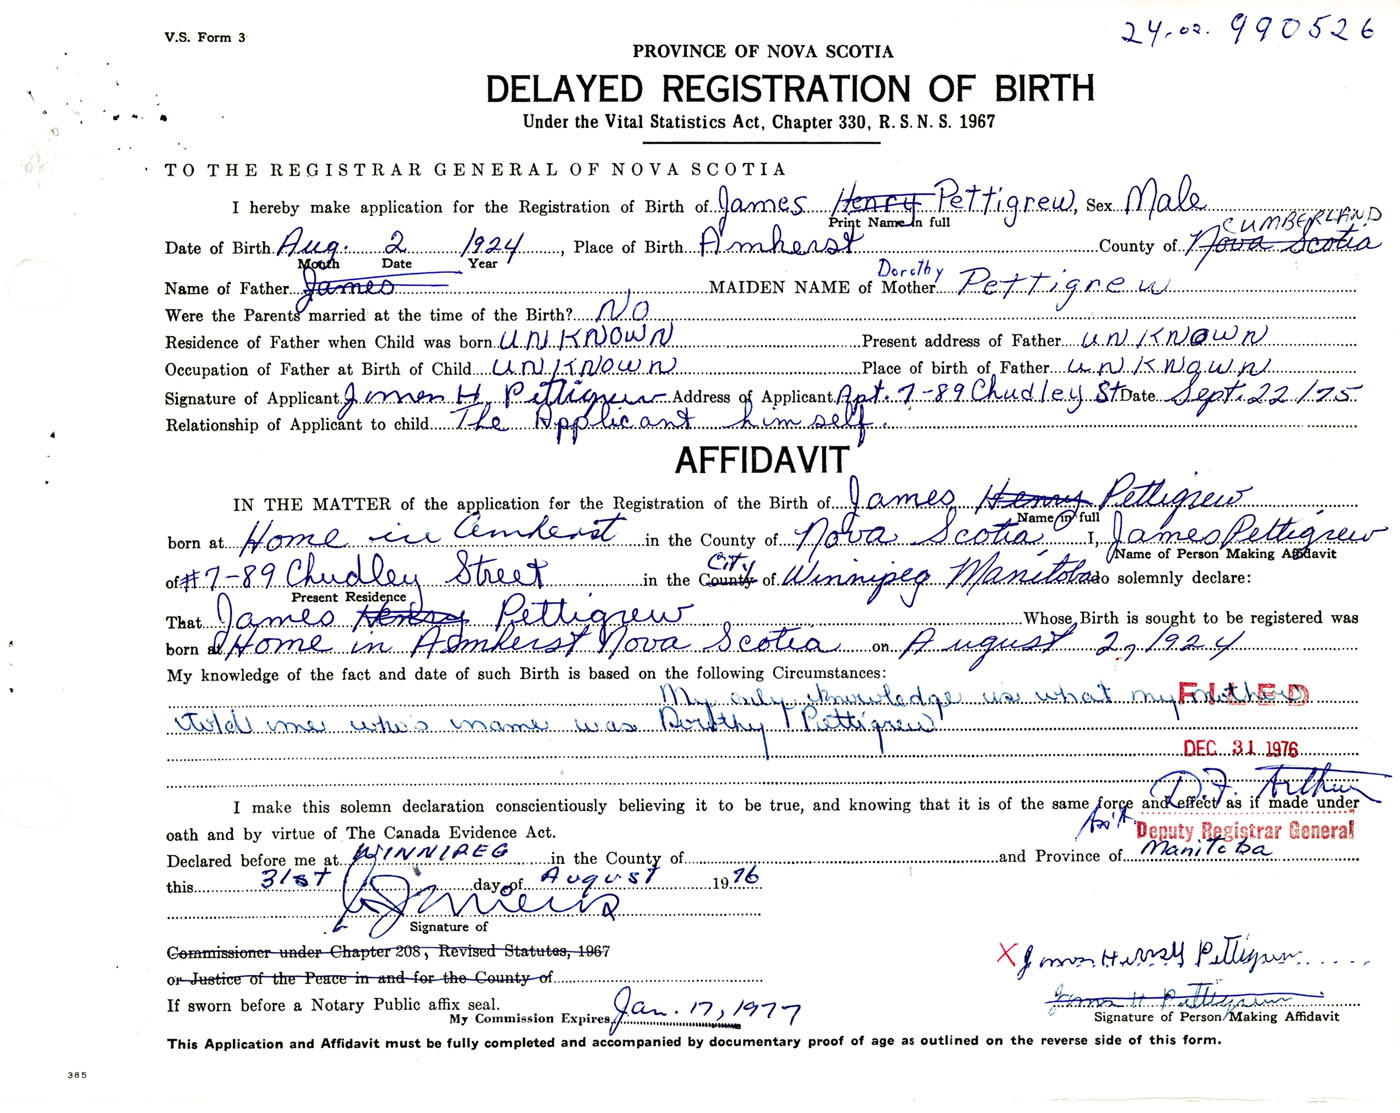 V.S. Form 3
24-02. 990526
PROVINCE OF NOVA SCOTIA
DELAYED REGISTRATION OF BIRTH
Under the Vital Statistics Act, Chapter 330, R. S. N. S. 1967
TO THE REGISTRAR GENERAL OF NOVA SCOTIA
I hereby make application for the Registration of Birth of James Henry Pettigrew, Sex Male
Print Name in full
CUMBERLAND
Date of Birth Aug. 2 1924, Place of Birth Amherst County of Nova Scotia
Month Date Year
Dorothy
Name of Father James MAIDEN NAME of Mother Pettigrew
Were the Parents married at the time of the Birth? NO
Residence of Father when Child was born UNKNOWN Present address of Father UNKNOWN
Occupation of Father at Birth of Child UNKNOWN Place of birth of Father UNKNOWN
Signature of Applicant James H. Pettigrew Address of Applicant Apt. 7-89 Chudley St Date Sept. 22/75
Relationship of Applicant to child The Applicant himself.
AFFIDAVIT
IN THE MATTER of the application for the Registration of the Birth of James Henry Pettigrew
Name in full
born at Home in Amherst in the County of Nova Scotia I, James Pettigrew
Name of Person Making Affidavit
City
of #7-89 Chudley Street in the County of Winnipeg Manitoba do solemnly declare:
Present Residence
That James Henry Pettigrew Whose Birth is sought to be registered was
born at Home in Amherst Nova Scotia on August 2, 1924
My knowledge of the fact and date of such Birth is based on the following Circumstances:
My only knowledge is what my mother
FILED
told me who's name was Dorothy Pettigrew
DEC 31 1976
D.F. Arthur
I make this solemn declaration conscientiously believing it to be true, and knowing that it is of the same force and effect as if made under
Ass't. Deputy Registrar General
oath and by virtue of The Canada Evidence Act.
Declared before me at WINNIPEG in the County of and Province of Manitoba
this 31st day of August 1976
Signature of
Commissioner under Chapter 208, Revised Statutes, 1967
X James H Pettigrew
or Justice of the Peace in and for the County of
James H Pettigrew
If sworn before a Notary Public affix seal.
Signature of Person Making Affidavit
My Commission Expires Jan. 17, 1977
This Application and Affidavit must be fully completed and accompanied by documentary proof of age as outlined on the reverse side of this form.
385